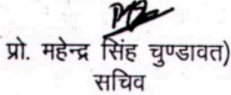 प्रो. महेन्द्र सिंह चुण्डावत)
सचिव